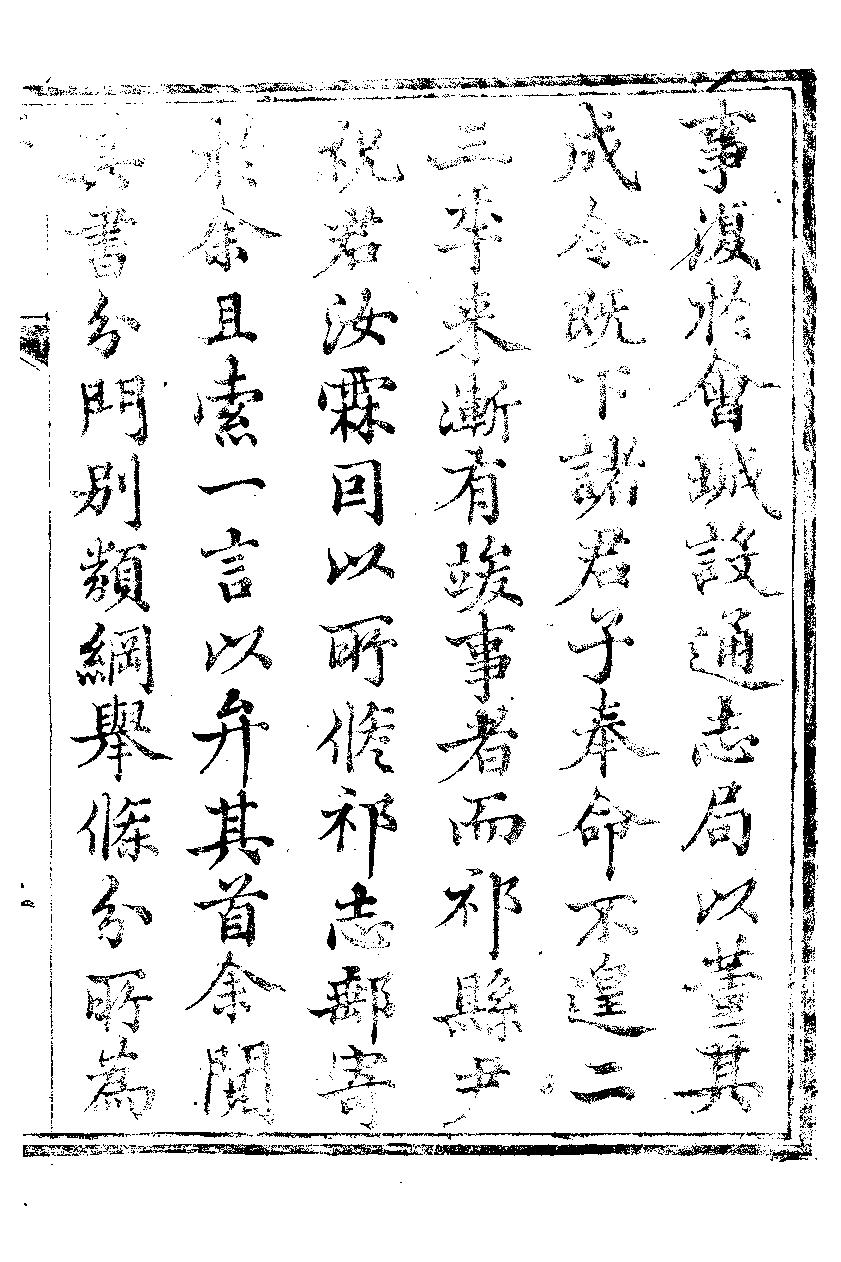 事復於會城設通志局以董其
成令既下諸君子奉命不遑二
三年来漸有竣事者而祁縣尹
祝君汝霖囙以所修祁志郵寄
於余且索一言以弁其首余閱
其書分門别類綱舉條分所為